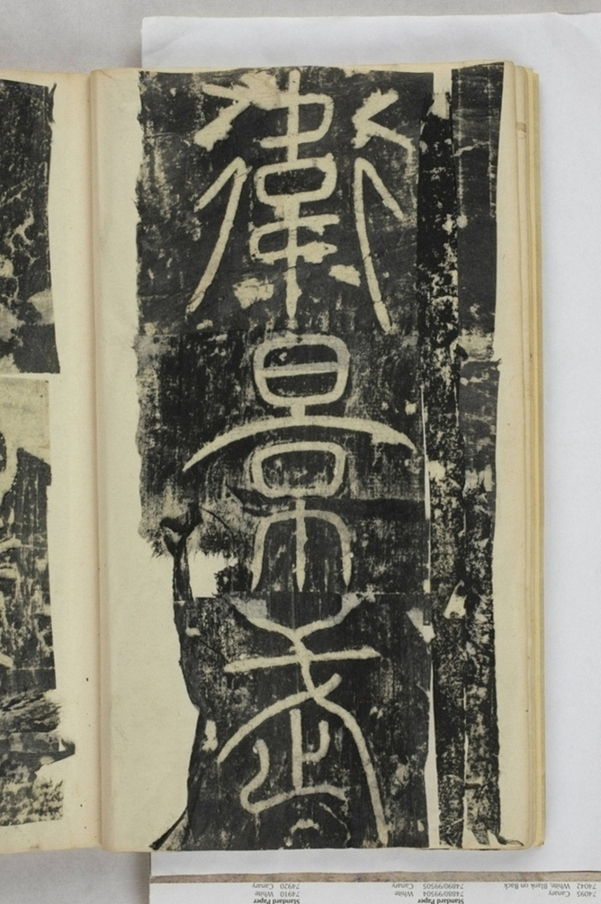 衛
景
武
74095 Canary
74042 White, Blank on Back
Standard Paper
74880/99504 White
74890/99505 Canary
Standard Paper
74910 White
74920 Canary